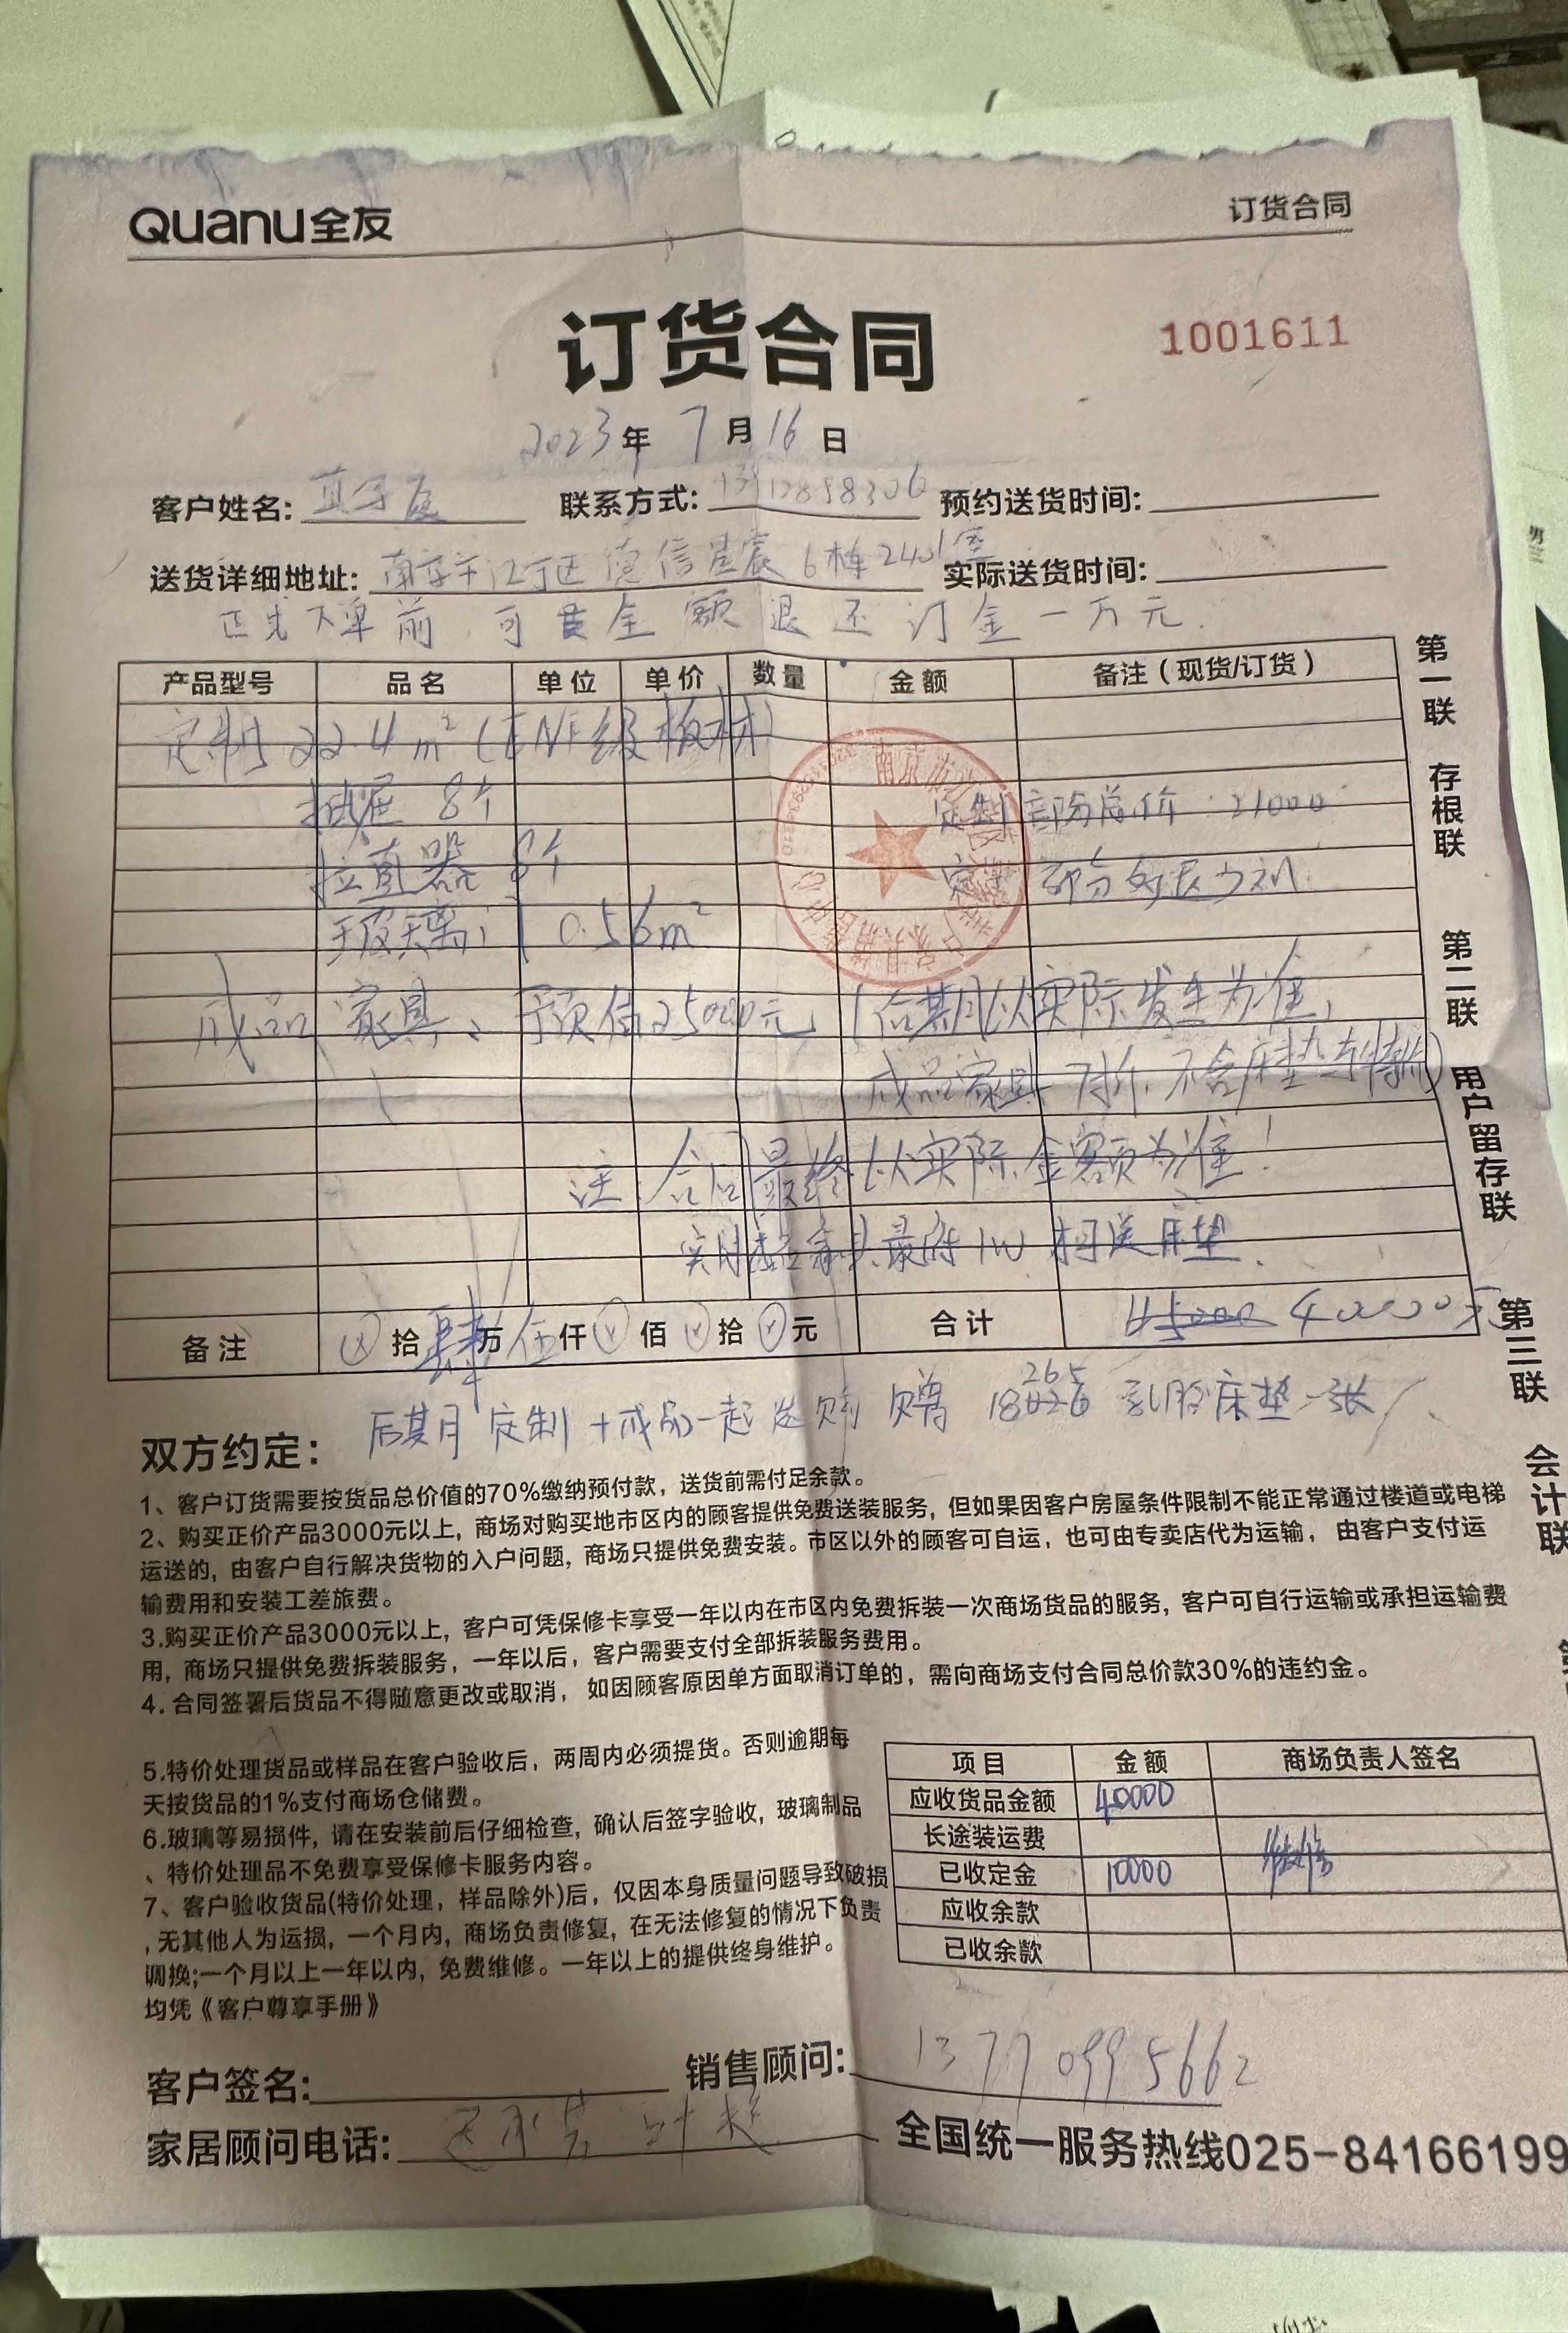 Quanu全友
订货合同
订货合同
1001611
2023年 7月16日
客户姓名: 联系方式: 预约送货时间:
送货详细地址: 南京市江宁区德信星宸6栋2401室 实际送货时间:
下单前,可全额退还订金一万元.
产品型号 品名 单位 单价 数量 金额 备注(现货/订货)
定制 22.4m² (ENF级板材)
抽屉 8个 定制部分总价 21000
拉直器 8个
玻璃门 0.56m²
成品家具、预估25000元,(后期以实际发生为准,
成品家具7折,不含床垫与特价)
注:合同最终以实际金额为准!
相送床垫.
备注 拾肆万伍仟 佰 拾 元 合计 45000 40000元
后期 定制+成品一起 赠 乳胶床垫一张
双方约定:
1、客户订货需要按货品总价值的70%缴纳预付款,送货前需付足余款。
2、购买正价产品3000元以上,商场对购买地市区内的顾客提供免费送装服务,但如果因客户房屋条件限制不能正常通过楼道或电梯
运送的,由客户自行解决货物的入户问题,商场只提供免费安装。市区以外的顾客可自运,也可由专卖店代为运输,由客户支付运
输费用和安装工差旅费。
3.购买正价产品3000元以上,客户可凭保修卡享受一年以内在市区内免费拆装一次商场货品的服务,客户可自行运输或承担运输费
用,商场只提供免费拆装服务,一年以后,客户需要支付全部拆装服务费用。
4.合同签署后货品不得随意更改或取消,如因顾客原因单方面取消订单的,需向商场支付合同总价款30%的违约金。
5.特价处理货品或样品在客户验收后,两周内必须提货。否则逾期每
天按货品的1%支付商场仓储费。
6.玻璃等易损件,请在安装前后仔细检查,确认后签字验收,玻璃制品
、特价处理品不免费享受保修卡服务内容。
7、客户验收货品(特价处理,样品除外)后,仅因本身质量问题导致破损
,无其他人为运损,一个月内,商场负责修复,在无法修复的情况下负责
调换;一个月以上一年以内,免费维修。一年以上的提供终身维护。
均凭《客户尊享手册》
项目 金额 商场负责人签名
应收货品金额 40000
长途装运费
已收定金 10000
应收余款
已收余款
客户签名: 销售顾问: 13770995662
家居顾问电话: 全国统一服务热线025-84166199
第一联 存根联 第二联 用户留存联 第三联 会计联